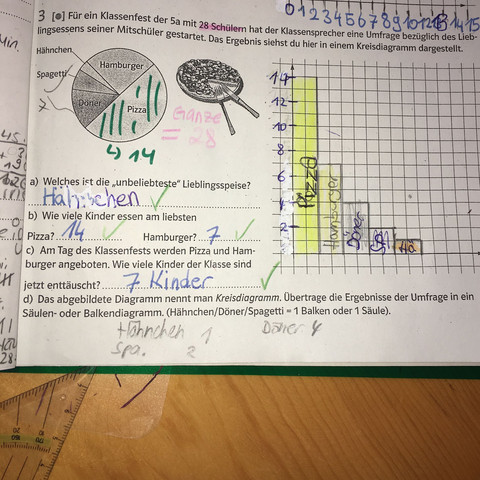 0 1 2 3 4 5 6 7 8 9 10 11 12 13 14 15
3 [●] Für ein Klassenfest der 5a mit 28 Schülern hat der Klassensprecher eine Umfrage bezüglich des Lieb-
lingsessens seiner Mitschüler gestartet. Das Ergebnis siehst du hier in einem Kreisdiagramm dargestellt.
Hähnchen
Hamburger
Spagetti
Döner
Pizza
Ganze
= 28
14
14
12
10
8
6
4
2
Pizza
Hamburger
Döner
Spa
Hä
a) Welches ist die „unbeliebteste“ Lieblingsspeise?
Hähnchen
b) Wie viele Kinder essen am liebsten
Pizza? 14 Hamburger? 7
c) Am Tag des Klassenfests werden Pizza und Ham-
burger angeboten. Wie viele Kinder der Klasse sind
jetzt enttäuscht? 7 Kinder
d) Das abgebildete Diagramm nennt man Kreisdiagramm. Übertrage die Ergebnisse der Umfrage in ein
Säulen- oder Balkendiagramm. (Hähnchen/Döner/Spagetti = 1 Balken oder 1 Säule).
Hähnchen 1 Döner 4
Spa. 2